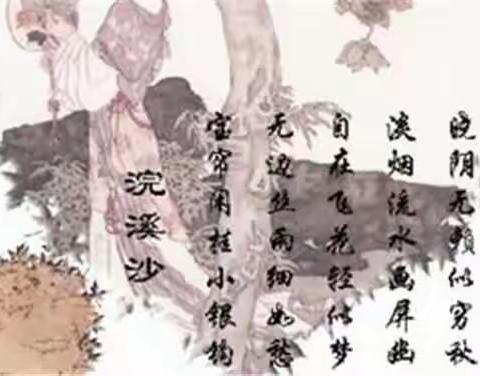 晓阴无赖似穷秋
淡烟流水画屏幽
自在飞花轻似梦
无边丝雨细如愁
宝帘闲挂小银钩
浣溪沙